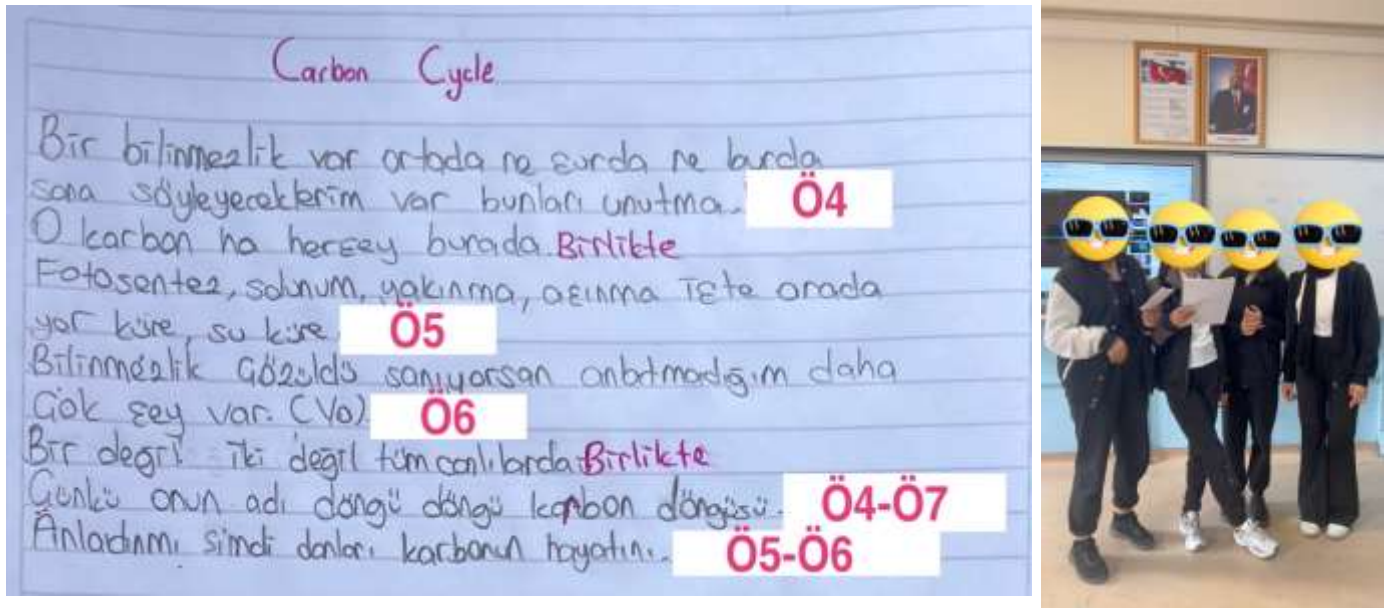 Carbon Cycle
Bir bilinmezlik var ortada ne şurda ne burda
sana söyleyeceklerim var bunları unutma. Ö4
O karbon ha herşey burada Birlikte
Fotosentez, solunum, yakınma, aşınma işte orada
yar küre, su küre Ö5
Bilinmezlik Çözüldü sanıyorsan anlatmadığım daha
Çok şey var. (Vo) Ö6
Bir değil iki değil tüm canlılarda Birlikte
Çünkü onun adı döngü döngü karbon döngüsü. Ö4-Ö7
Anladınmı şimdi karbonun hayatını. Ö5-Ö6